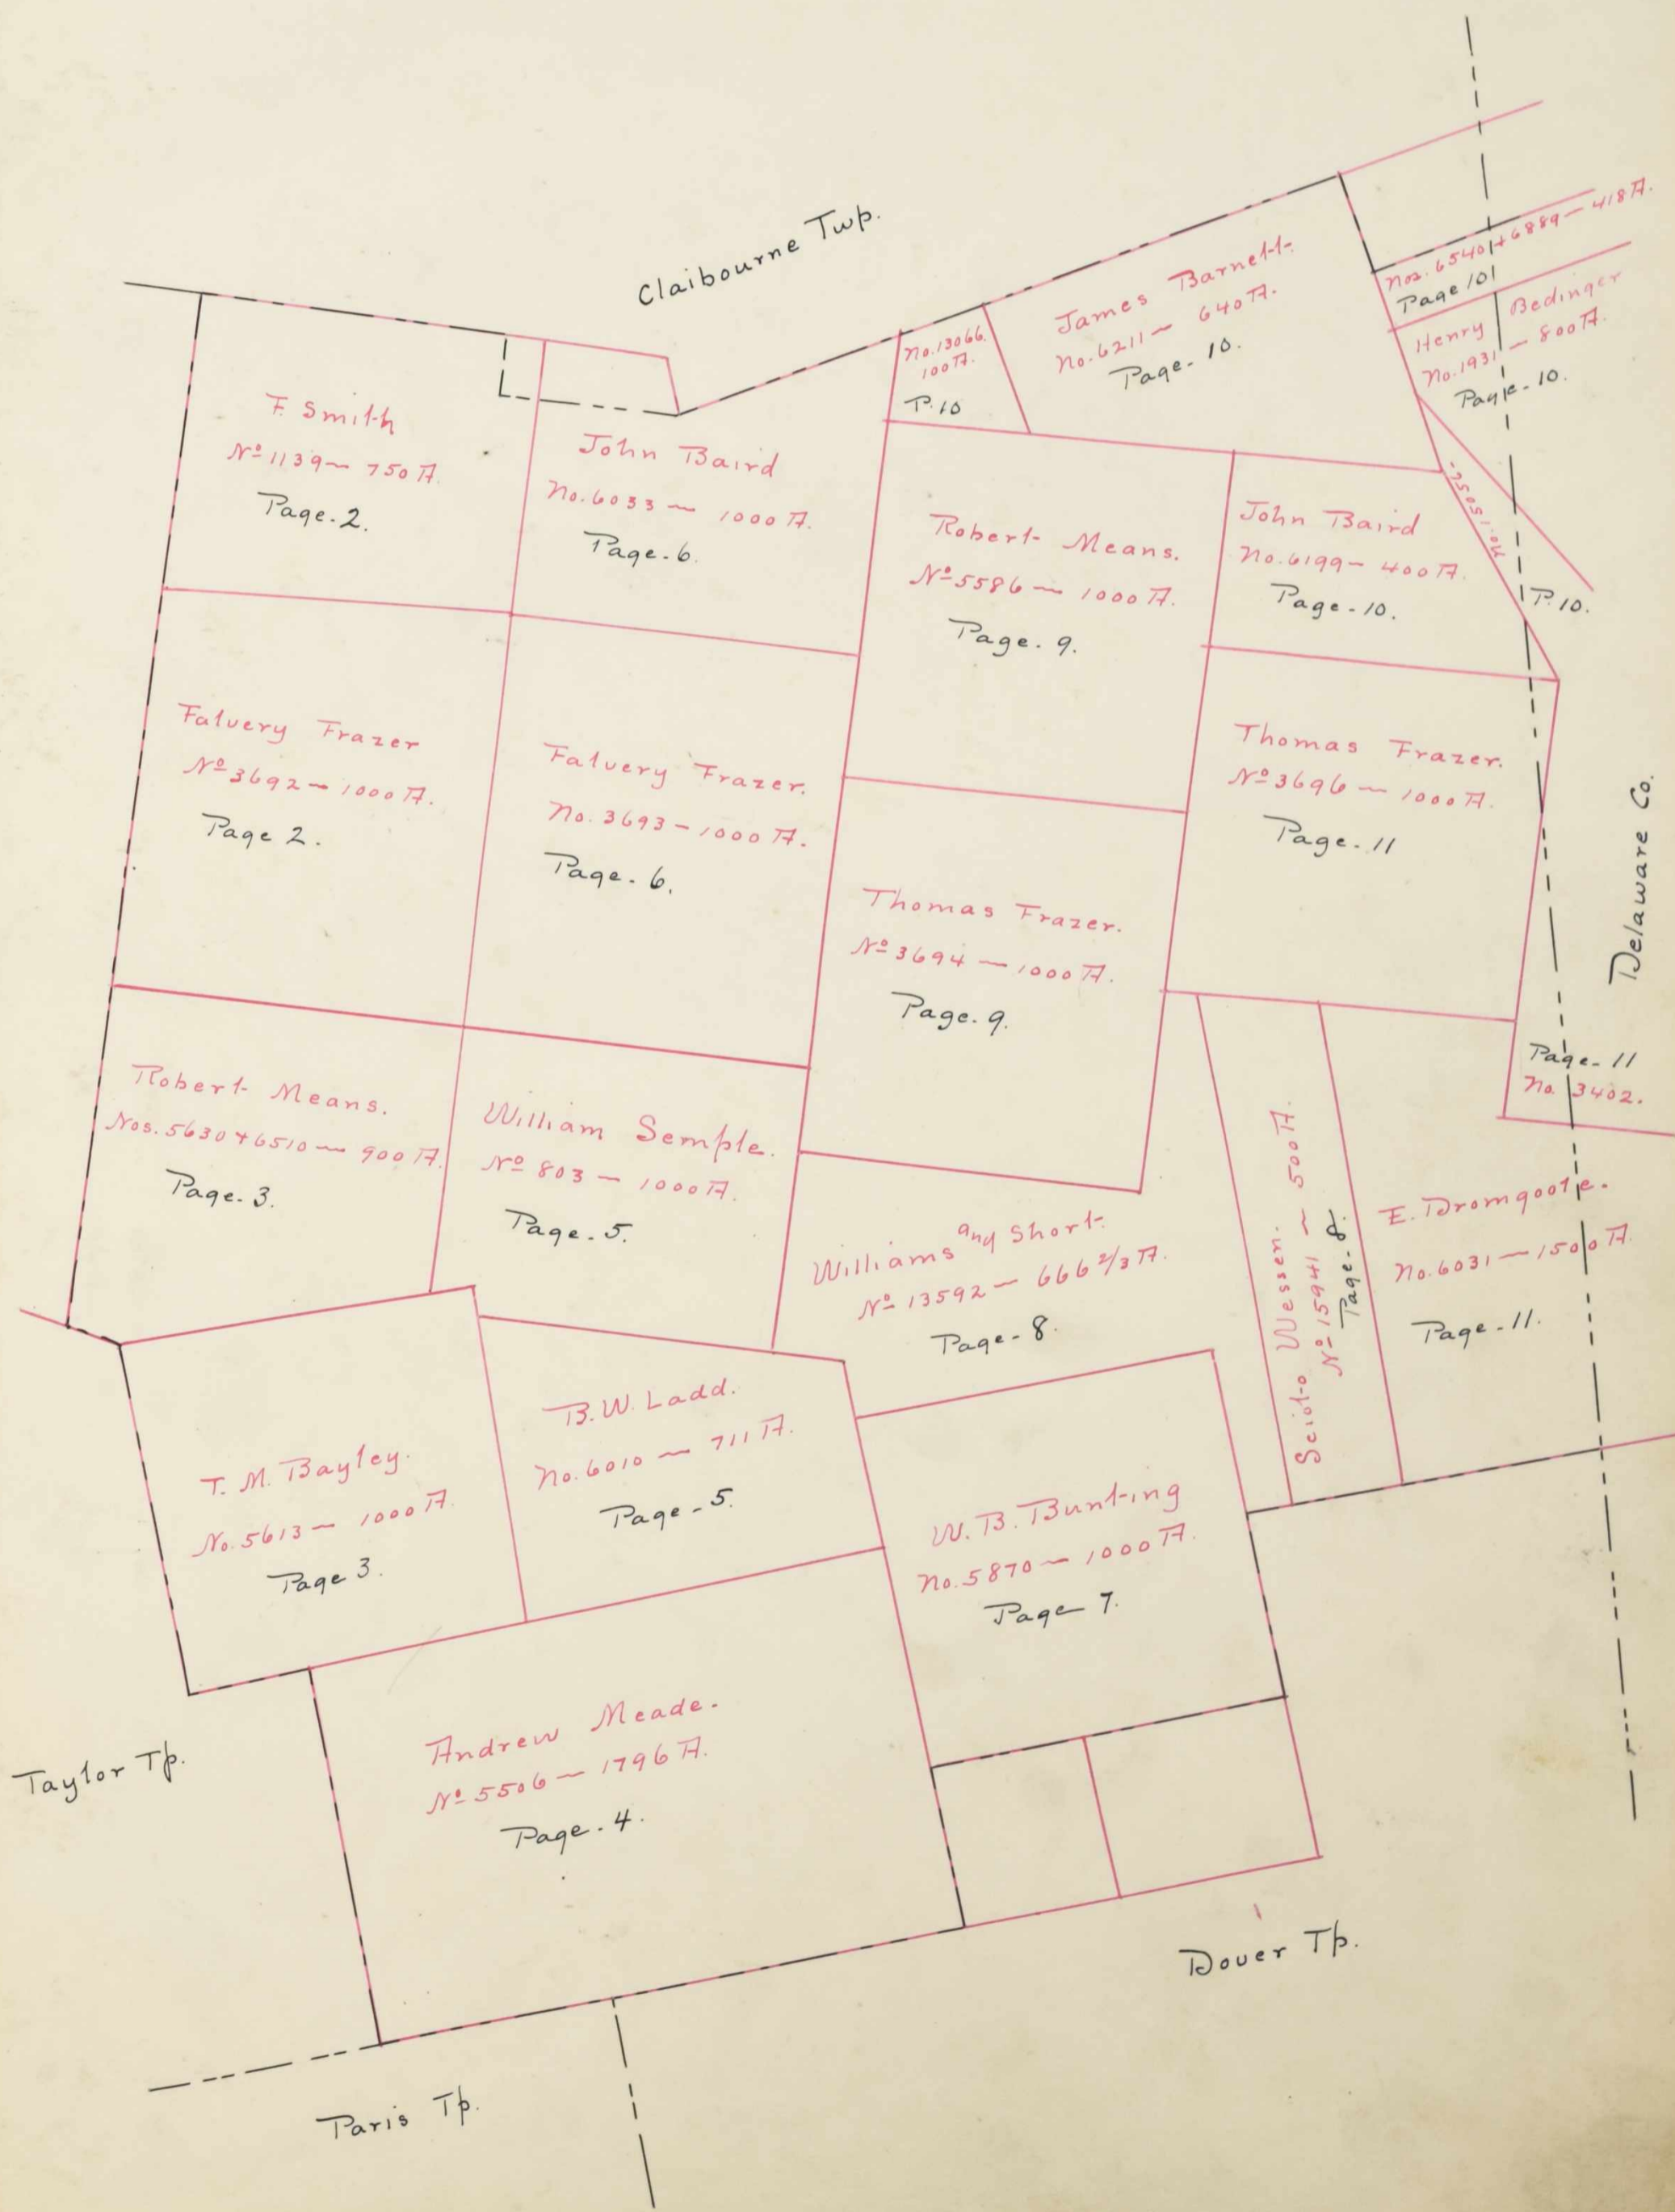 Claibourne Twp.
No. 13066.
100 A.
P. 10
James Barnett.
No. 6211 ~ 640 A.
Page. 10.
Nos. 6540 + 6889 — 418 A.
Page 10
Henry Bedinger
No. 1931 — 800 A.
Page - 10.
F. Smith
Nº 1139 ~ 750 A.
Page. 2.
John Baird
No. 6033 ~ 1000 A.
Page. 6.
Robert Means.
Nº 5586 ~ 1000 A.
Page. 9.
John Baird
No. 6199 ~ 400 A.
Page - 10.
P. 10.
Falvery Frazer
Nº 3692 ~ 1000 A.
Page 2.
Falvery Frazer.
No. 3693 - 1000 A.
Page. 6.
Thomas Frazer.
Nº 3694 — 1000 A.
Page. 9.
Thomas Frazer.
Nº 3696 — 1000 A.
Page. 11
Delaware Co.
Page - 11
No. 3402.
Robert Means.
Nos. 5630 + 6510 ~ 900 A.
Page. 3.
William Semple.
Nº 803 — 1000 A.
Page. 5.
Williams and Short.
Nº 13592 — 666 2/3 A.
Page - 8.
Scioto Wessen.
Nº 15941 ~ 500 A.
Page - 8.
E. Dromgoole.
No. 6031 — 1500 A.
Page - 11.
T. M. Bayley.
No. 5613 ~ 1000 A.
Page 3.
B. W. Ladd.
No. 6010 ~ 711 A.
Page - 5.
W. B. Bunting
No. 5870 ~ 1000 A.
Page 7.
Andrew Meade.
Nº 5506 ~ 1796 A.
Page. 4.
Taylor Tp.
Dover Tp.
Paris Tp.